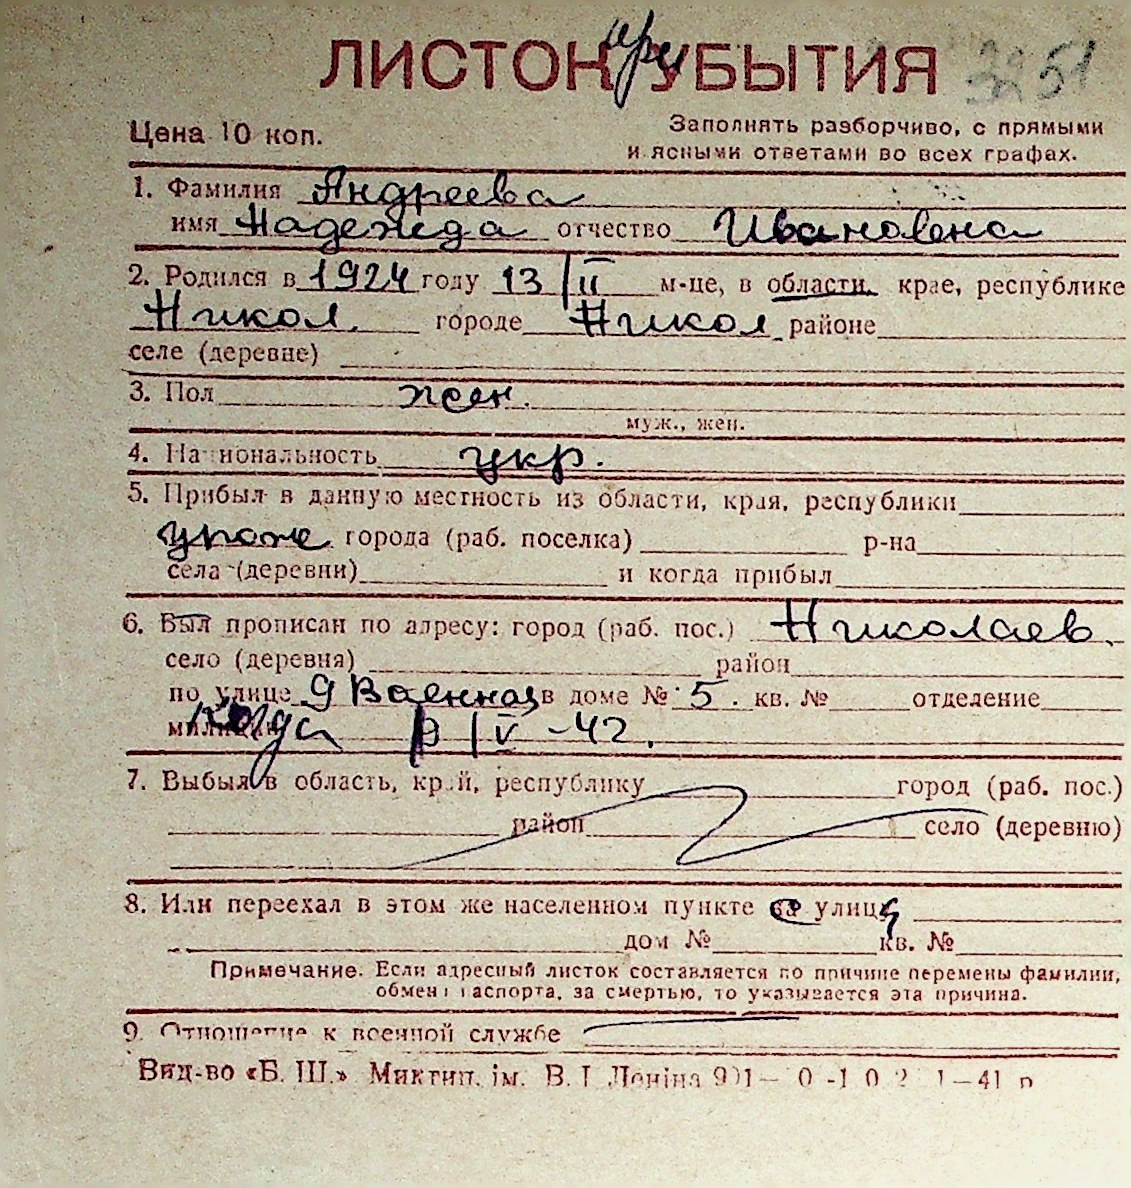 ЛИСТОК при УБЫТИЯ 3251
Цена 10 коп. Заполнять разборчиво, с прямыми
и ясными ответами во всех графах.
1. Фамилия Андреева
имя Надежда отчество Ивановна
2. Родился в 1924 году 13/II м-це, в области, крае, республике
Никол. городе Никол. районе
селе (деревне)
3. Пол жен.
муж., жен.
4. Национальность укр.
5. Прибыл в данную местность из области, края, республики
города (раб. поселка) р-на
села (деревни) и когда прибыл
6. Был прописан по адресу: город (раб. пос.) Николаев.
село (деревня) район
по улице 9 Военная в доме № 5. кв. № отделение
милиции когда IV-42.
7. Выбыл в область, край, республику город (раб. пос.)
район село (деревню)
8. Или переехал в этом же населенном пункте с улицы
дом № кв. №
Примечание. Если адресный листок составляется по причине перемены фамилии,
обмена паспорта, за смертью, то указывается эта причина.
9. Отношение к военной службе
Вид-во «Б. Ш.» Миктип. ім. В. І. Леніна